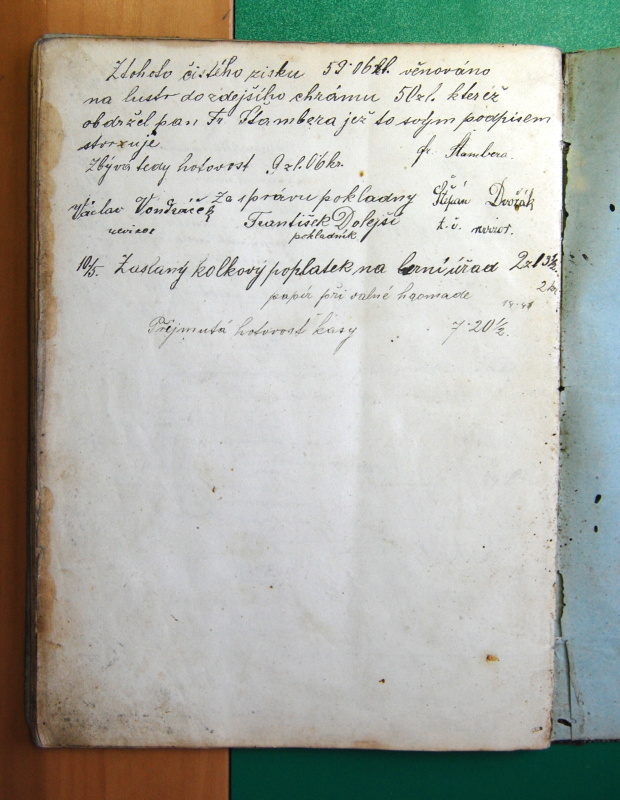 Z tohoto čistého zisku 59·06 zl. věnováno
na lustr do zdejšího chrámu 50 zl. kteréž
obdržel pan Fr. Štambera jež to svým podpisem
stvrzuje.
Fr. Štambera.
Zbývá tedy hotovost 9 zl. 06 kr.
Za správu pokladny
Václav Vondráček
revisor
František Dolejší
pokladník
Štěpán Dvořák
t. č. revisor.
10/5. Zaslaný kolkový poplatek na berní úřad 2 zl
papír při valné hromadě 2 kr
Přejmutá hotovost kasy 7·20½.